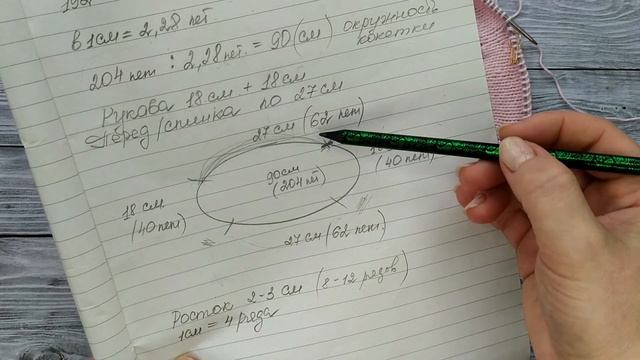 в 1см = 2,28 пет
204 пет : 2,28 пет. = 90 (см) окружность кокетки
Рукова 18 см + 18 см
Перед/спинка по 27 см
27 см (62 пет)
90 см
(204 пт)
(40 пет)
18 см
(40 пет)
27 см (62 пет.)
Росток 2-3 см (8-12 рядов)
1см = 4 ряда